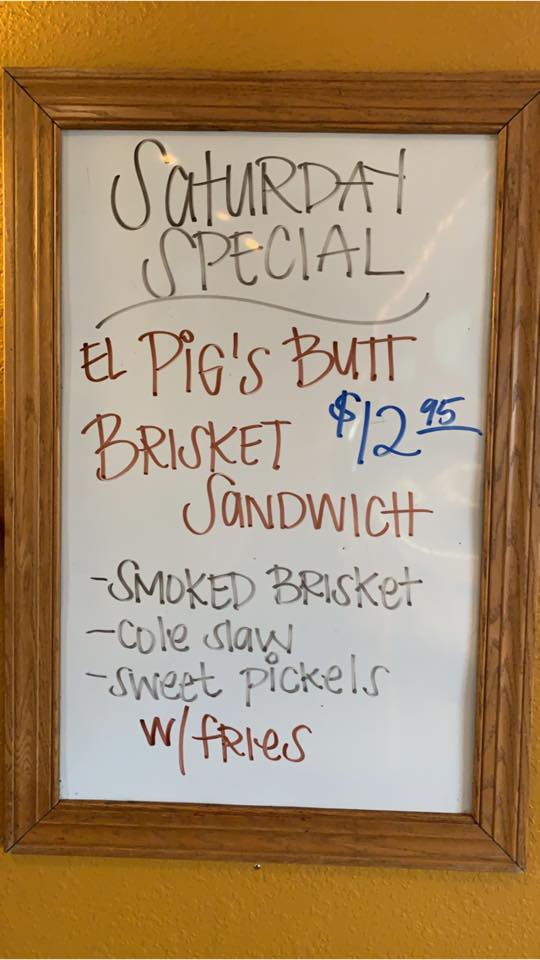 SatURDAY
SPECIAL
EL PiG'S BUTT
BRISKET $12 95
SaNDWICH
-SMOKED BRISKet
-Cole slaw
-sweet pickels
w/fRies